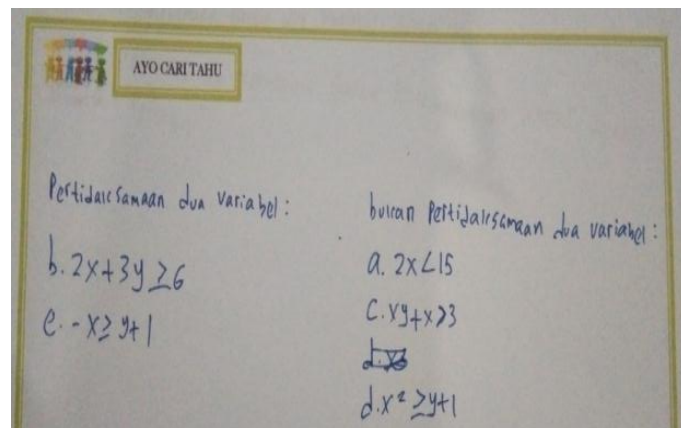 AYO CARI TAHU
Pertidaksamaan dua variabel :
b. 2x+3y ≥ 6
e. -x ≥ y+1
bukan Pertidaksamaan dua variabel :
a. 2x < 15
C. xy+x > 3
d. x² ≥ y+1